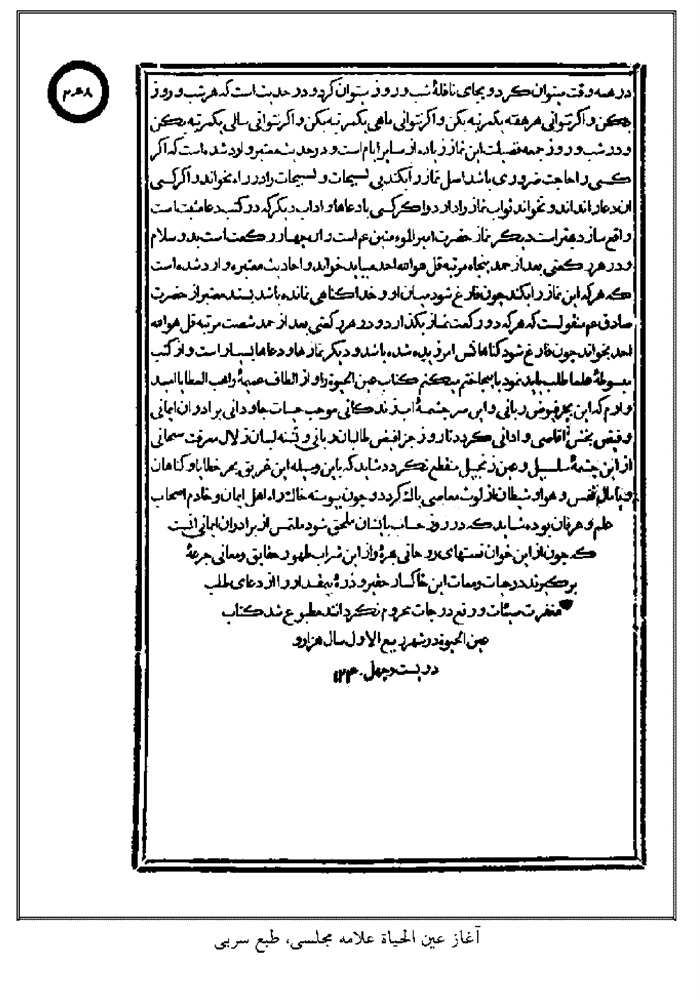 در همه وقت میتوان کرد و بجای نافلهٔ شب و روز میتوان کرد و در حدیث است که هر شب و روز
بکن و اگر نتوانی هر هفته یکمرتبه بکن و اگر نتوانی ماهی یکمرتبه بکن و اگر نتوانی سالی یکمرتبه بکن
و در شب و روز جمعه فضیلت این نماز زیاده از سایر ایام است و در حدیث معتبر وارد شده است که اگر
کسی را حاجت ضروری باشد اصل نماز را بکند بی تسبیحات و تسبیحات را در راه بخواند و اگر کسی
این دعا را نداند و نخواند ثواب نماز را دارد و اگر کسی با دعاها و اداب دیگر که در کتب دعا مثبت است
واقع سازد بهتر است دیگر نماز حضرت امیر المومنین عم است و آن چهار رکعت است بدو سلام
و در هر رکعتی بعد از حمد پنجاه مرتبه قل هو الله احد میباید خواند و احادیث معتبره وارد شده است
که هر که این نماز را بکند چون فارغ شود میان او و خدا گناهی نمانده باشد بسند معتبر از حضرت
صادق عم منقولست که هر که دو رکعت نماز بگذارد و در هر رکعتی بعد از حمد شصت مرتبه قل هو الله
احد بخواند چون فارغ شود گناهانش امرزیده شده باشد و دیگر نمازها و دعاها بسیار است و از کتب
مبسوطهٔ علما طلب باید نمود باینجا ختم میکنم کتاب عین الحیوة را و از الطاف عمیمهٔ واهب العطایا امید
دارم که این بحر فیوض ربانی و این سر چشمهٔ اب زندگانی موجب حیات جاودانی برادران ایمانی
و فیض بخش اقاصی و ادانی گردد تا روز جزا فیض طالبان ربانی و تشنه لبان زلال معرفت سبحانی
از این چشمهٔ سلسبیل و عین زنجبیل منقطع نگردد شاید که باین وسیله این غریق بحر خطایا و گناهان
و پامال نفس و هوا و شیطان از لوث معاصی پاک گردد و چون پیوسته خاک راه اهل ایمان و خادم اصحاب
علم و عرفان بوده شاید که در روز حساب بایشان ملحق شود ملتمس از برادران ایمانی انست
که چون از این خوان نعمتهای روحانی بهره و از این شراب طهور حقایق و معانی جرعهٔ
بر گیرند در حیات و ممات این خاکسار حقیر و ذرهٔ بیمقدار را از دعای طلب
مغفرت سیئات و رفع درجات محروم نگردانند مطبوع شد کتاب
عین الحیوة در شهر ربیع الاول سال هزار و
دویست و چهل ۱۲۴۰
آغاز عین الحیاة علامه مجلسی، طبع سربی